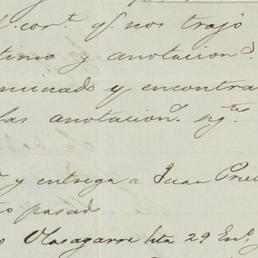 cor.^t q.^e nos trajo
tino y anotacion.^s
minado y encontra
las anotacion.^s sig.^tes
y entrega a Juan Prie
pasado
Olasagarre hta 29 En.^o